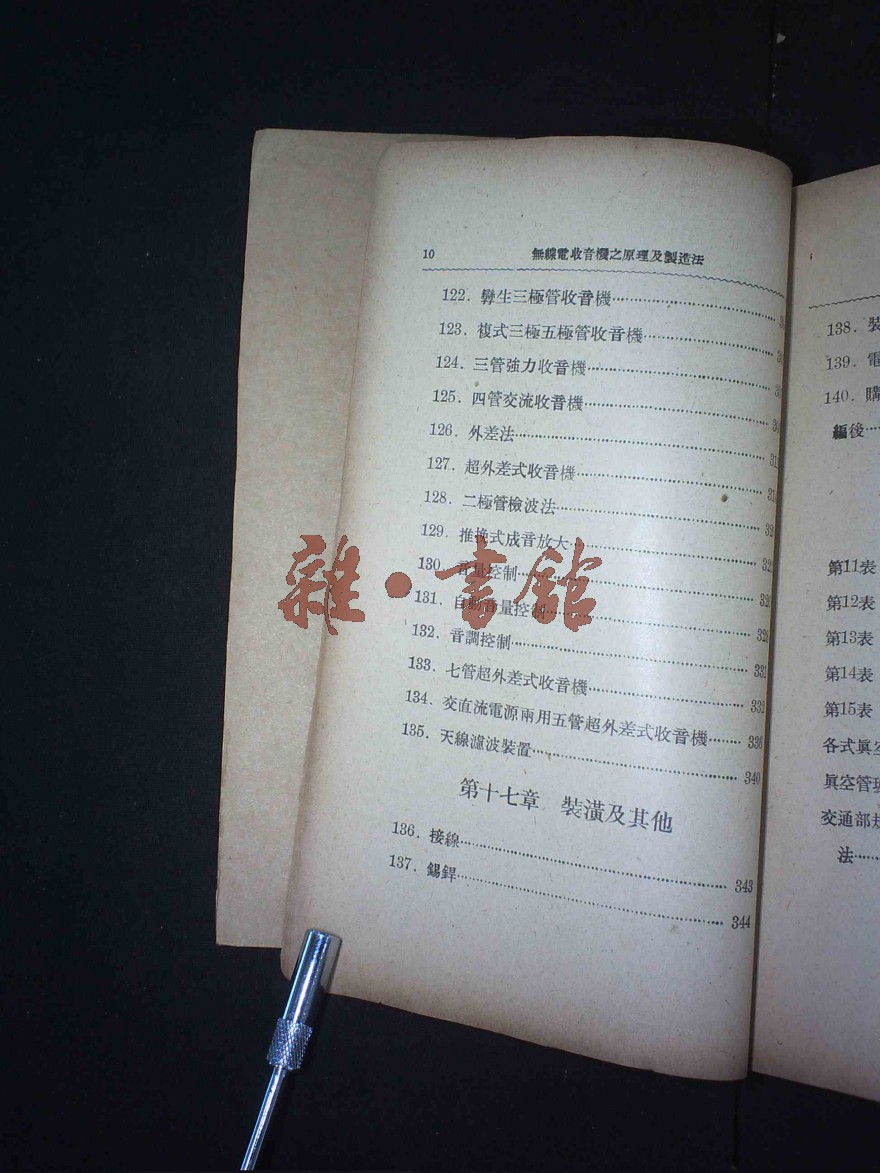 10 無線電收音機之原理及製造法
122. 孿生三極管收音機
123. 複式三極五極管收音機
124. 三管強力收音機
125. 四管交流收音機
126. 外差法
127. 超外差式收音機
128. 二極管檢波法
129. 推挽式成音放大
130. 音量控制
131. 自動音量控制
132. 音調控制
133. 七管超外差式收音機
134. 交直流電源兩用五管超外差式收音機 336
135. 天線濾波裝置 340
第十七章 裝潢及其他
136. 接線 343
137. 錫銲 344
138. 裝
139. 電
140. 購
編後
第11表
第12表
第13表
第14表
第15表
各式眞空
眞空管
交通部
法
雜·書館